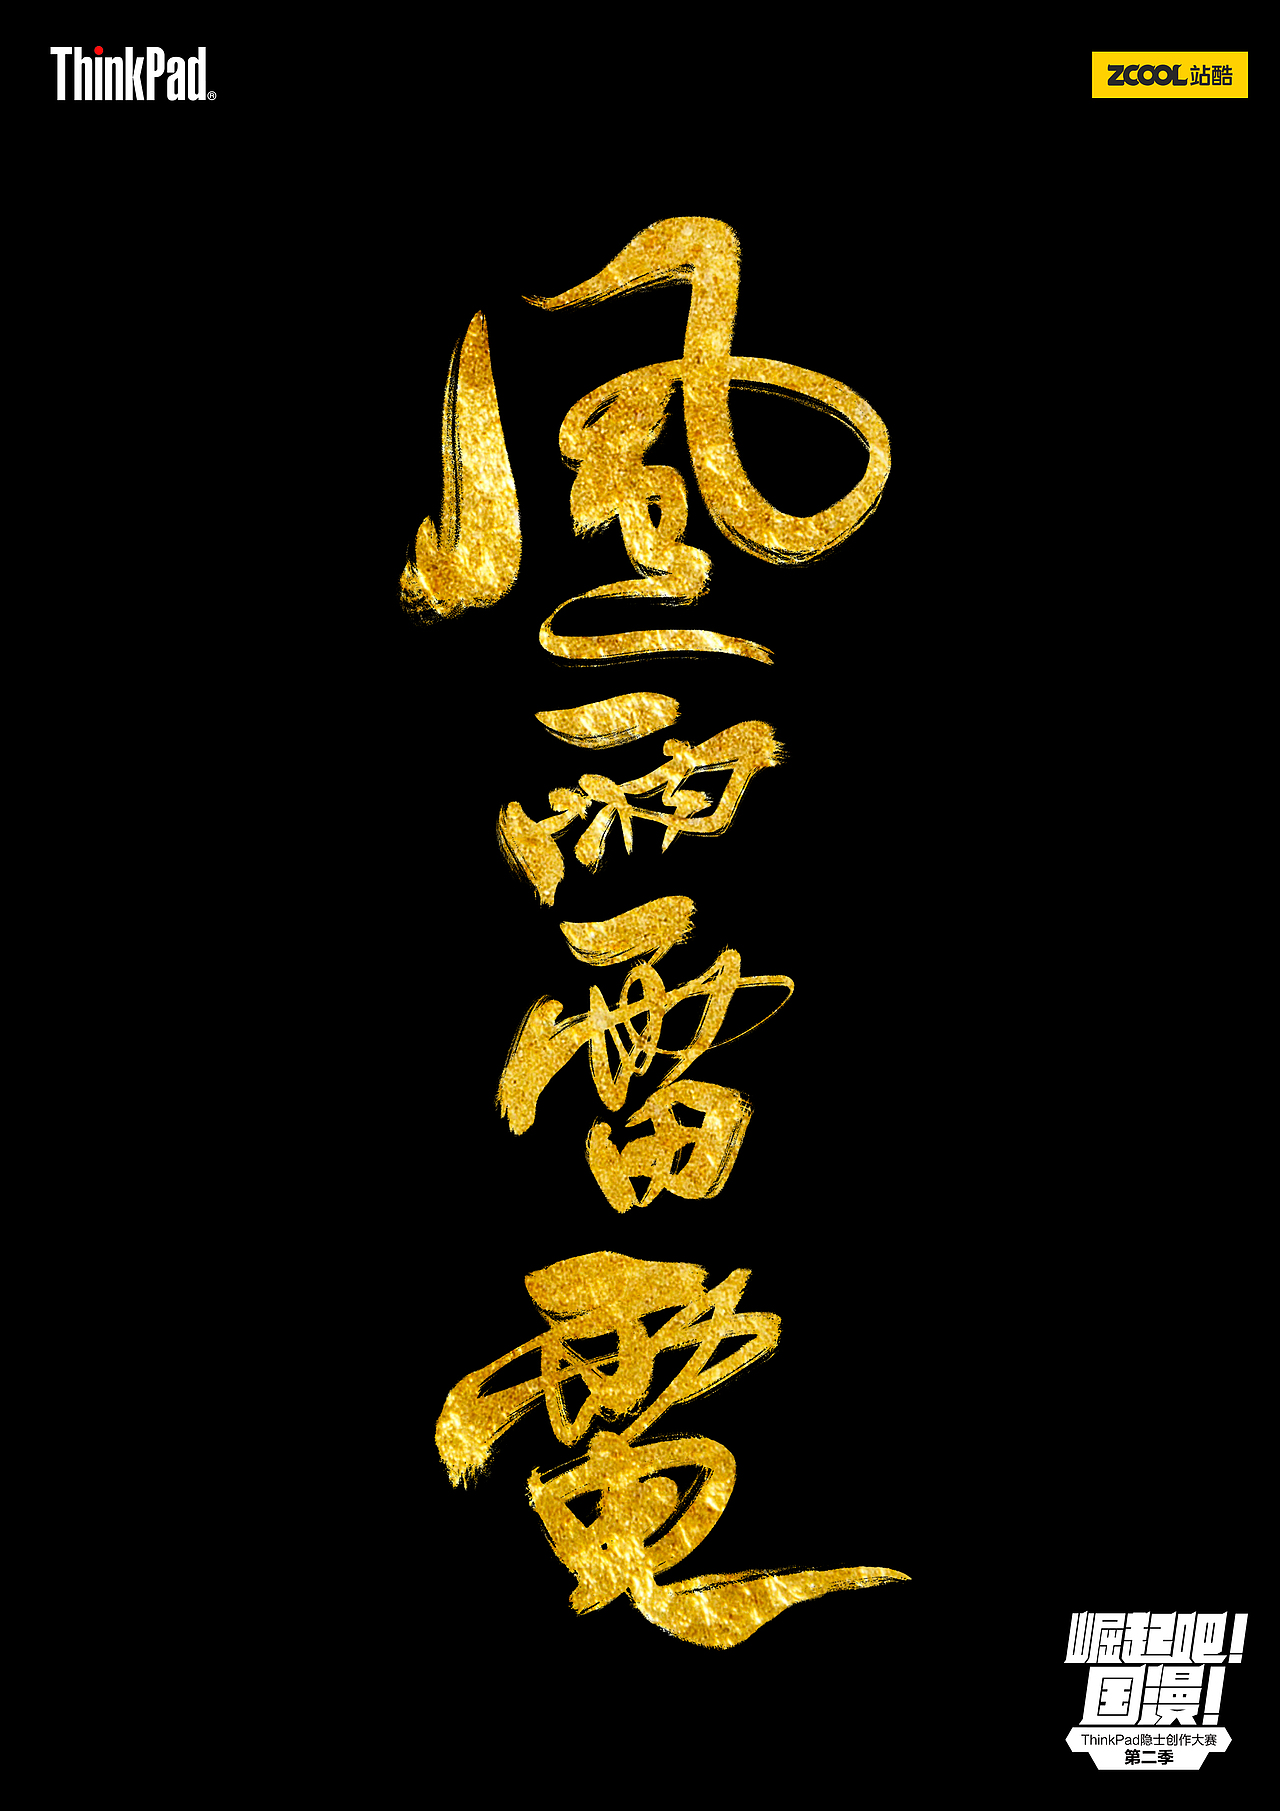 ThinkPad®
ZCOOL站酷
風雨雷電
崛起吧!
国漫!
ThinkPad隐士创作大赛
第二季